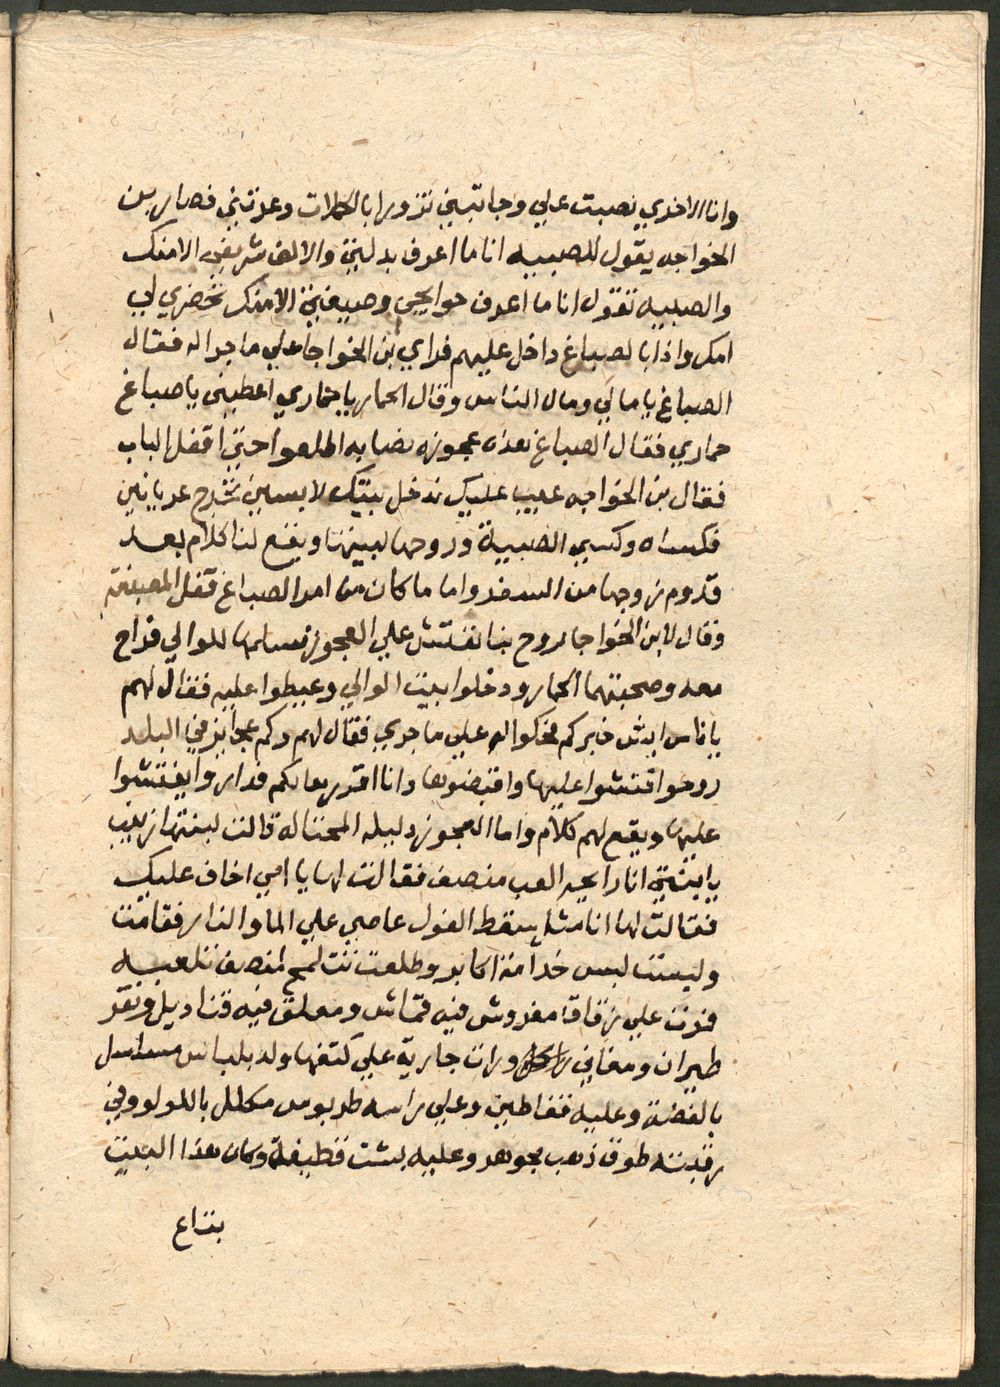 وانا الاخري نصبت علي وجاتبني نزورها بالحملات وعرتني فصار بن
الخواجه يقول للصبيه انا ما اعرف بدلتي والالف شريفي الامنك
والصبيه تقول انا ما اعرف حوايجي وصيغتي الامنك تحضري لي
امك واذا بالصباغ داخل عليهم فراي بن الخواجا علي ما جراله فقال
الصباغ يا مالي ومال الناس وقال الحمار يا حماري اعطيني يا صباغ
حماري فقال الصباغ هذه عجوزه نصابه اطلعوا حتي اقفل الباب
فقال بن الخواجه عيب عليك ندخل بيتك لابسين نخرج عريانين
فكساه وكسي الصبية وروحها لبيتها ويقع لنا كلام بعد
قدوم زوجها من السفر واما ما كان من امر الصباغ قفل المصبغه
وقال لابن الخواجا روح بنا نفتش علي العجوز نسلمها للوالي فراح
معه وصحبتهما الحمار ودخلوا بيت الوالي وعيطوا عليه فقال لهم
يا ناس ايش خبركم فحكوا له علي ما جري فقال لهم وكم عجايز في البلد
روحوا فتشوا عليها واقبضوها وانا اقررها لكم فداروا يفتشوا
عليها ويقع لهم كلام واما العجوز دليله المحتاله قالت لبنتها زينب
يا بنتي انا رايحه العب منصف فقالت لها يا امي اخاف عليك
فقالت لها انا مثل سقط الفول عاصي علي الما والنار فقامت
ولبست لبس خدامة اكابر وطلعت تتلمح لمنصف تلعبه
فزت علي زقاق مفروش فيه قماش ومعلق فيه قناديل ونقر
طيران ومغاني ورات جارية علي كتفها ولد بلباس مساسل
بالفضة وعليه قفاطين وعلي راسه طربوش مكلل باللولو وفي
رقبته طوق ذهب مجوهر وعليه بشت قطيفة وكان هذا البيت
بتاع